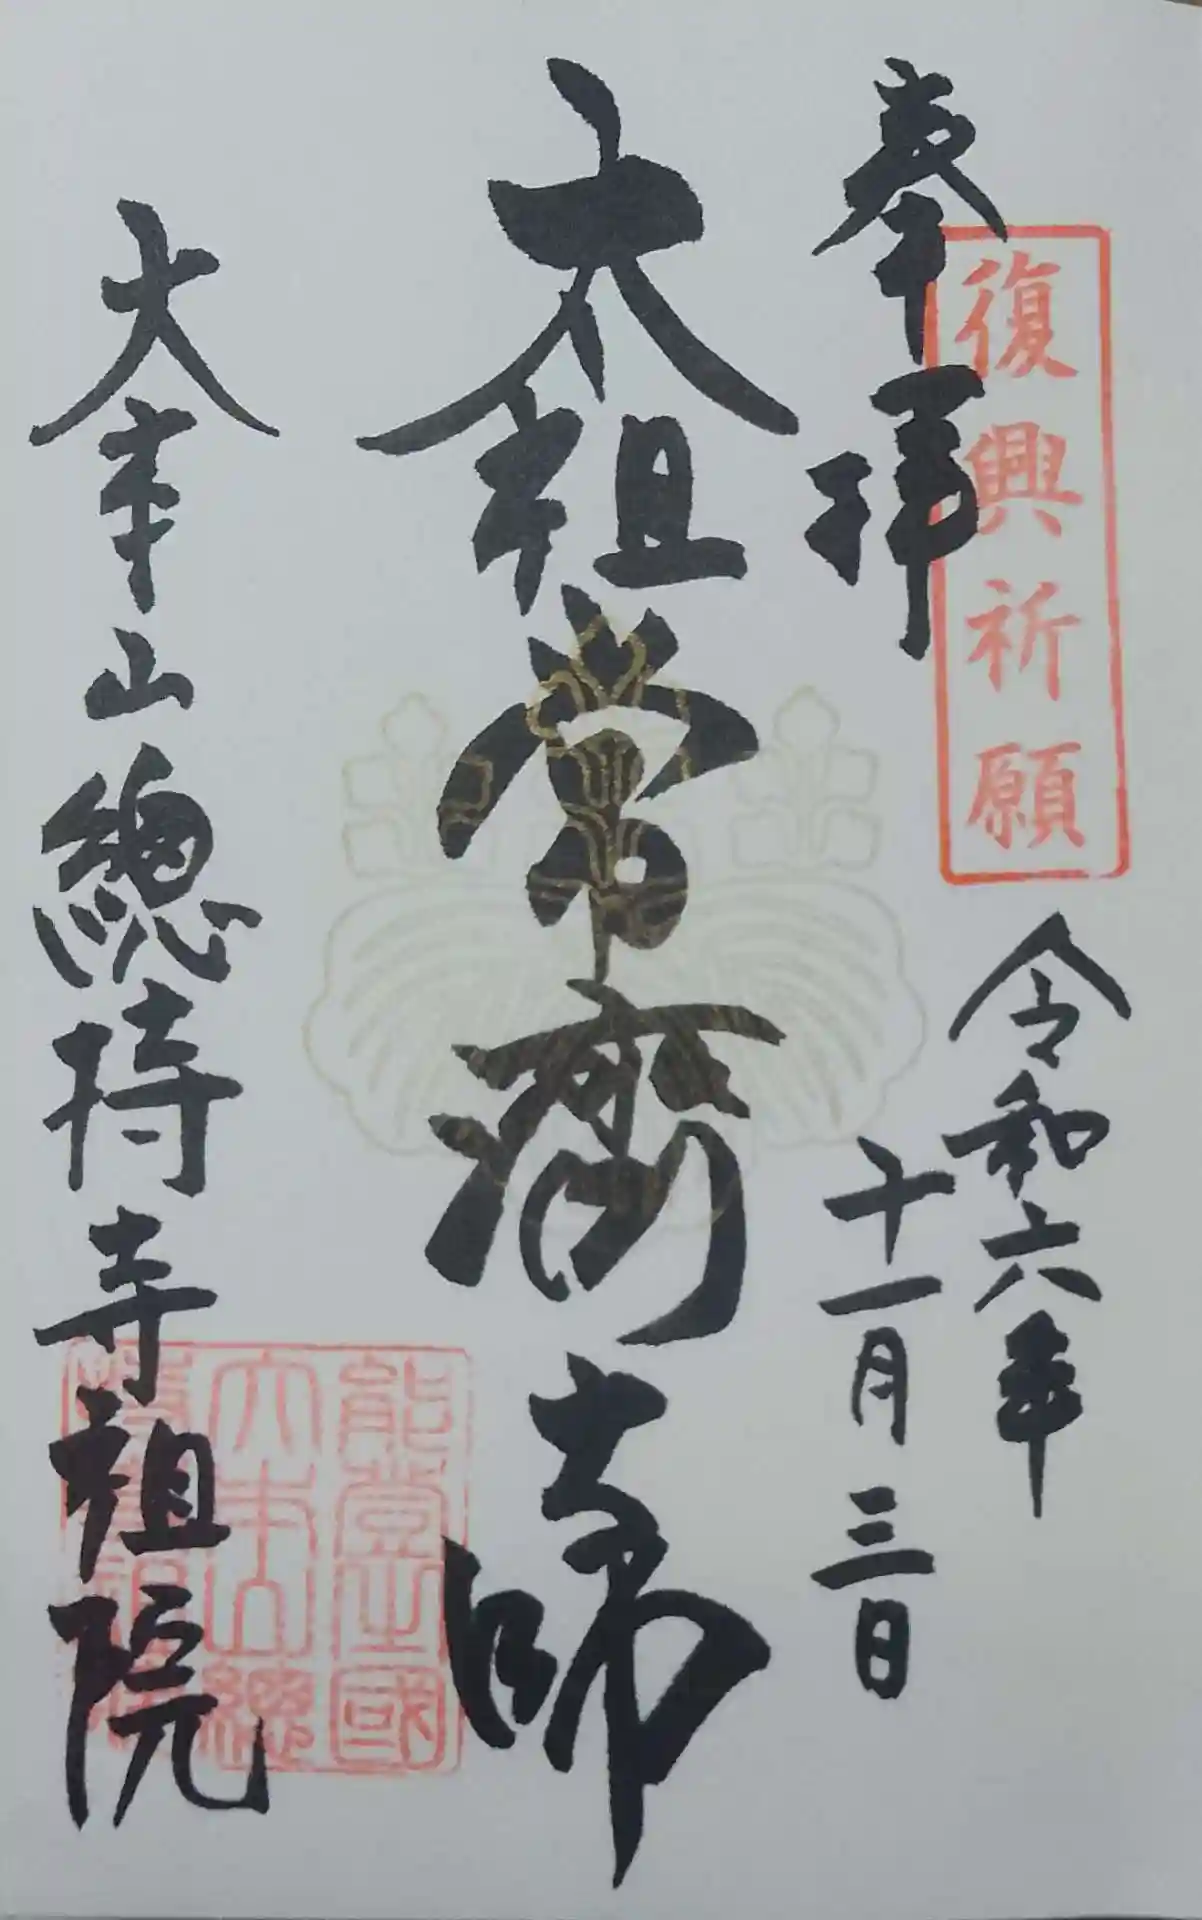 復興祈願
奉拝
令和六年
十一月三日
太祖常濟大師
大本山總持寺祖院
能登國
大本山總
持寺祖院